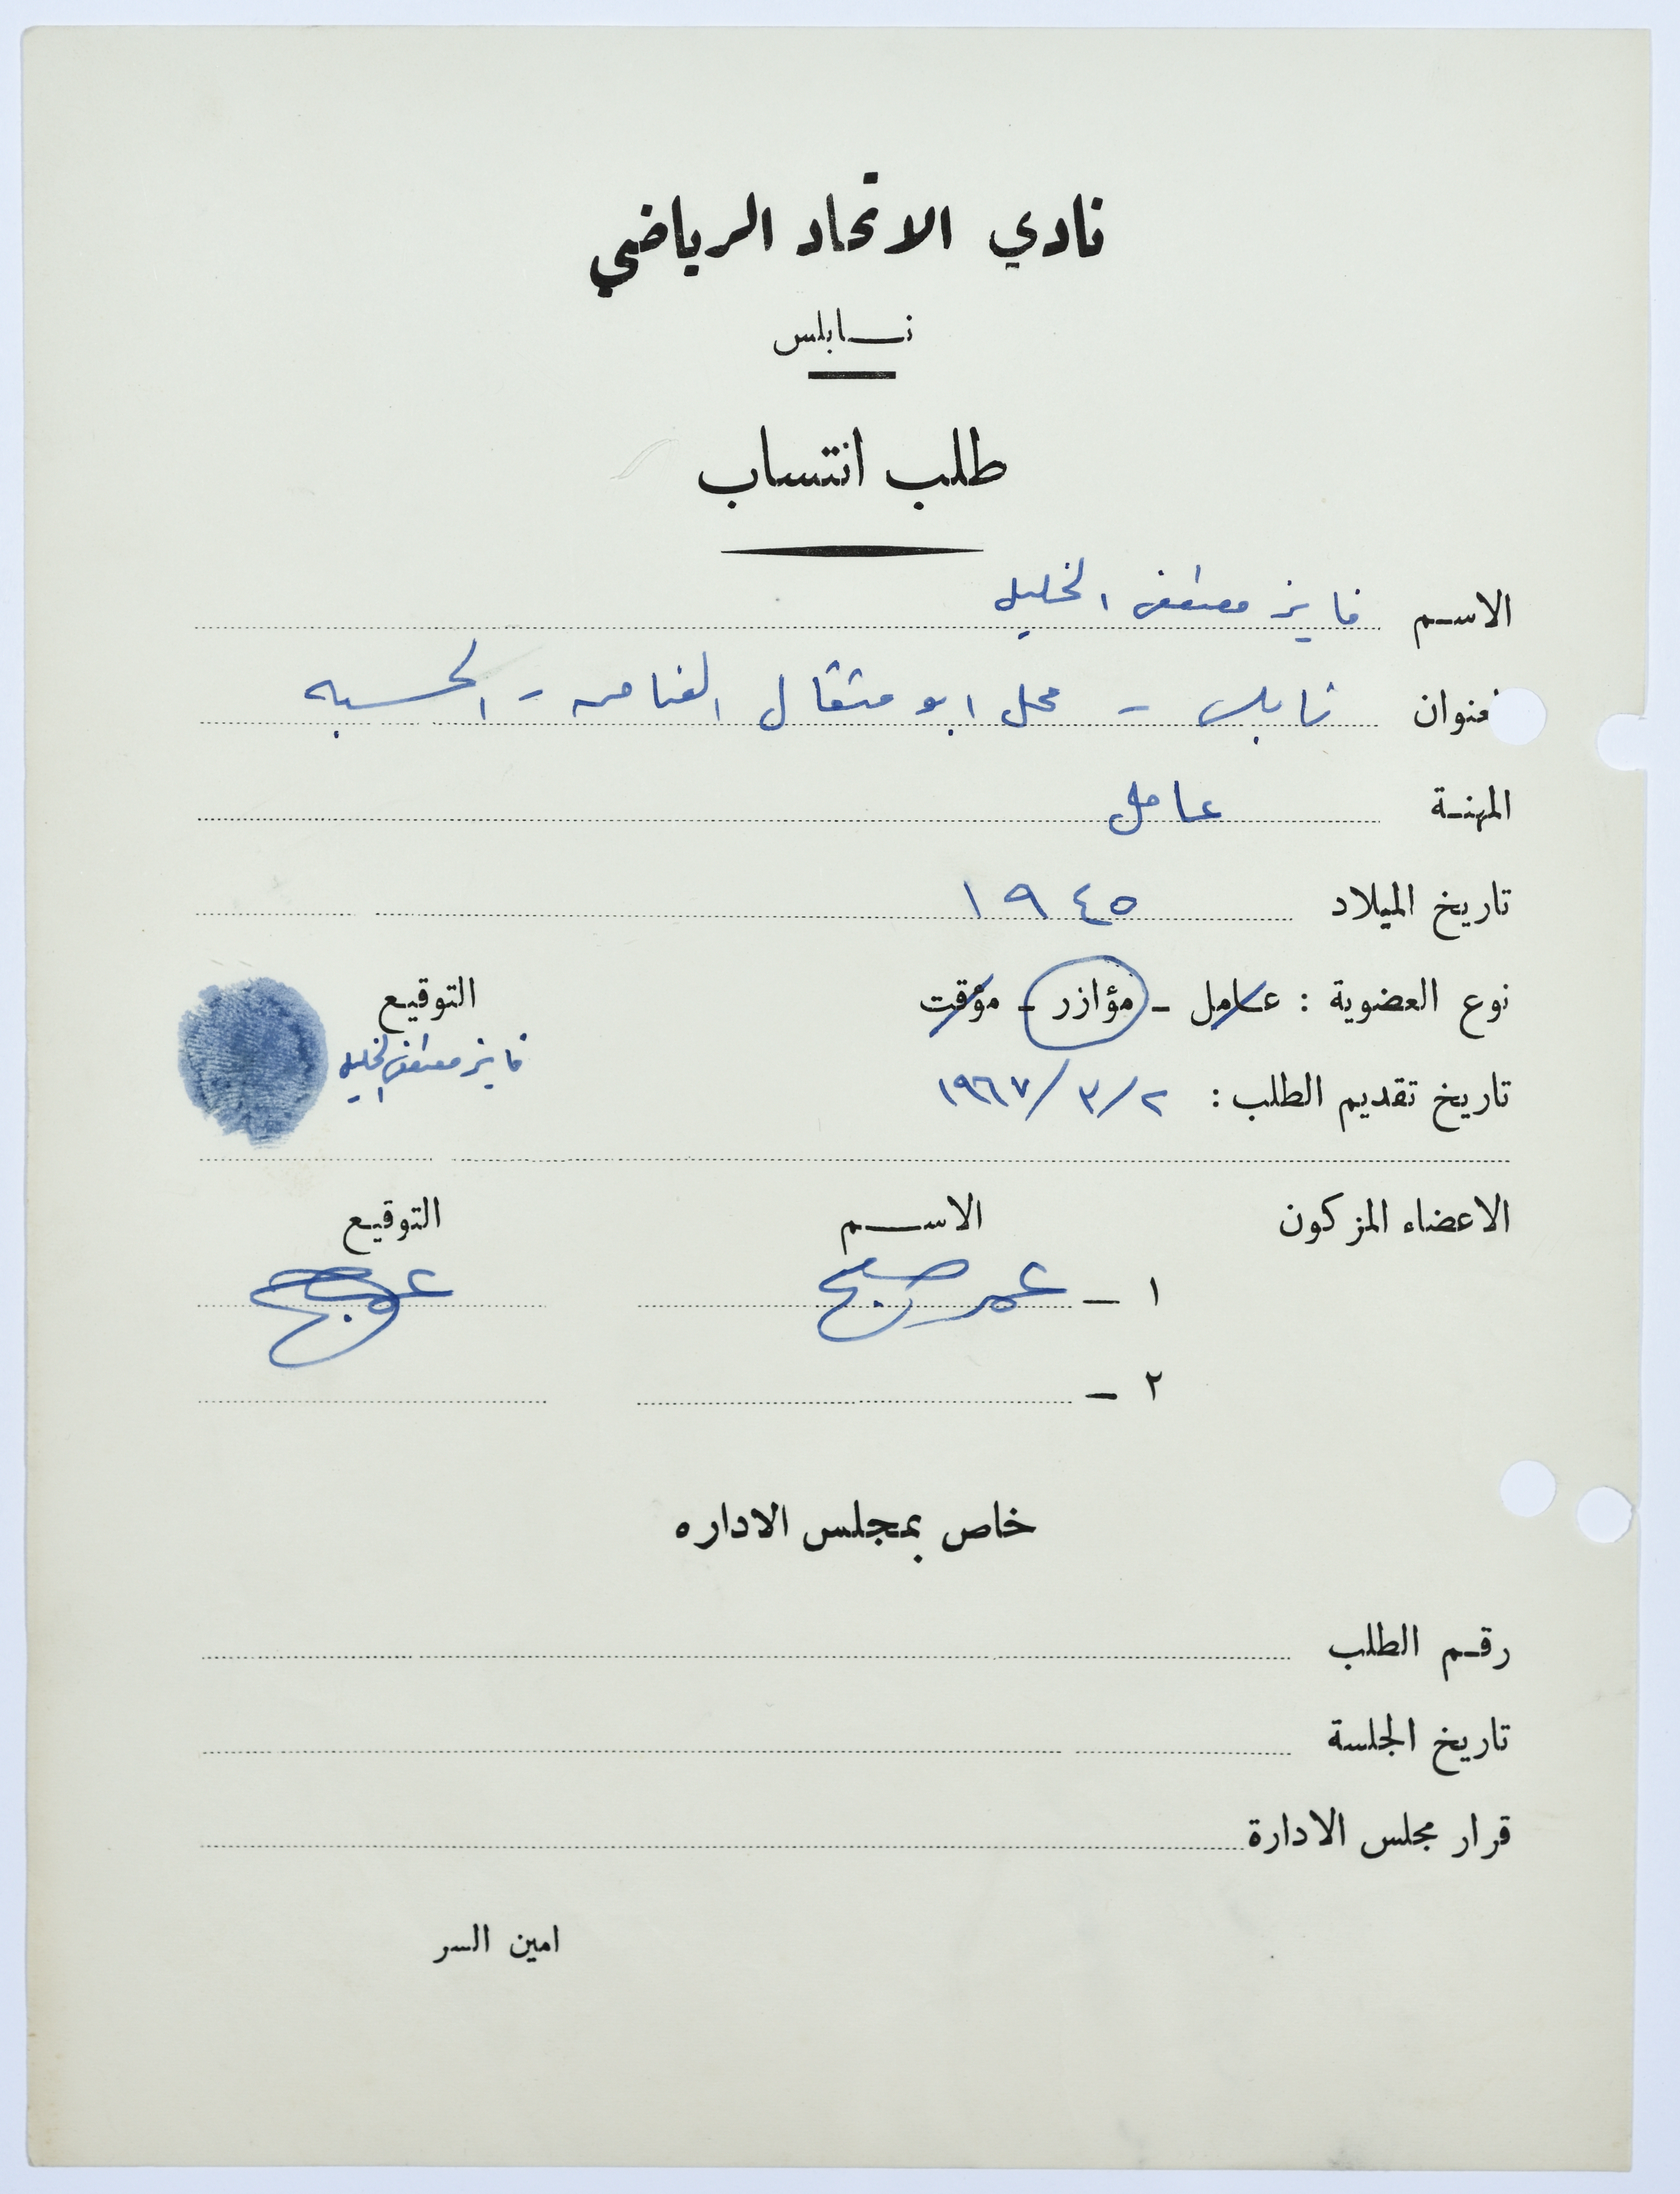 نادي الاتحاد الرياضي
نابلس
طلب انتساب
الاسم فايز مصطفى الخليلي
العنوان نابلس - محل ابو مثقال الغنامه - الحسبه
المهنة عامل
تاريخ الميلاد ١٩٤٥
نوع العضوية : عامل - مؤازر - مؤقت التوقيع
فايز مصطفى الخليلي
تاريخ تقديم الطلب : ٢/٣/١٩٦٧
الاعضاء المزكون الاسم التوقيع
١ - عمر صبح
٢ -
خاص بمجلس الاداره
رقم الطلب
تاريخ الجلسة
قرار مجلس الادارة
امين السر